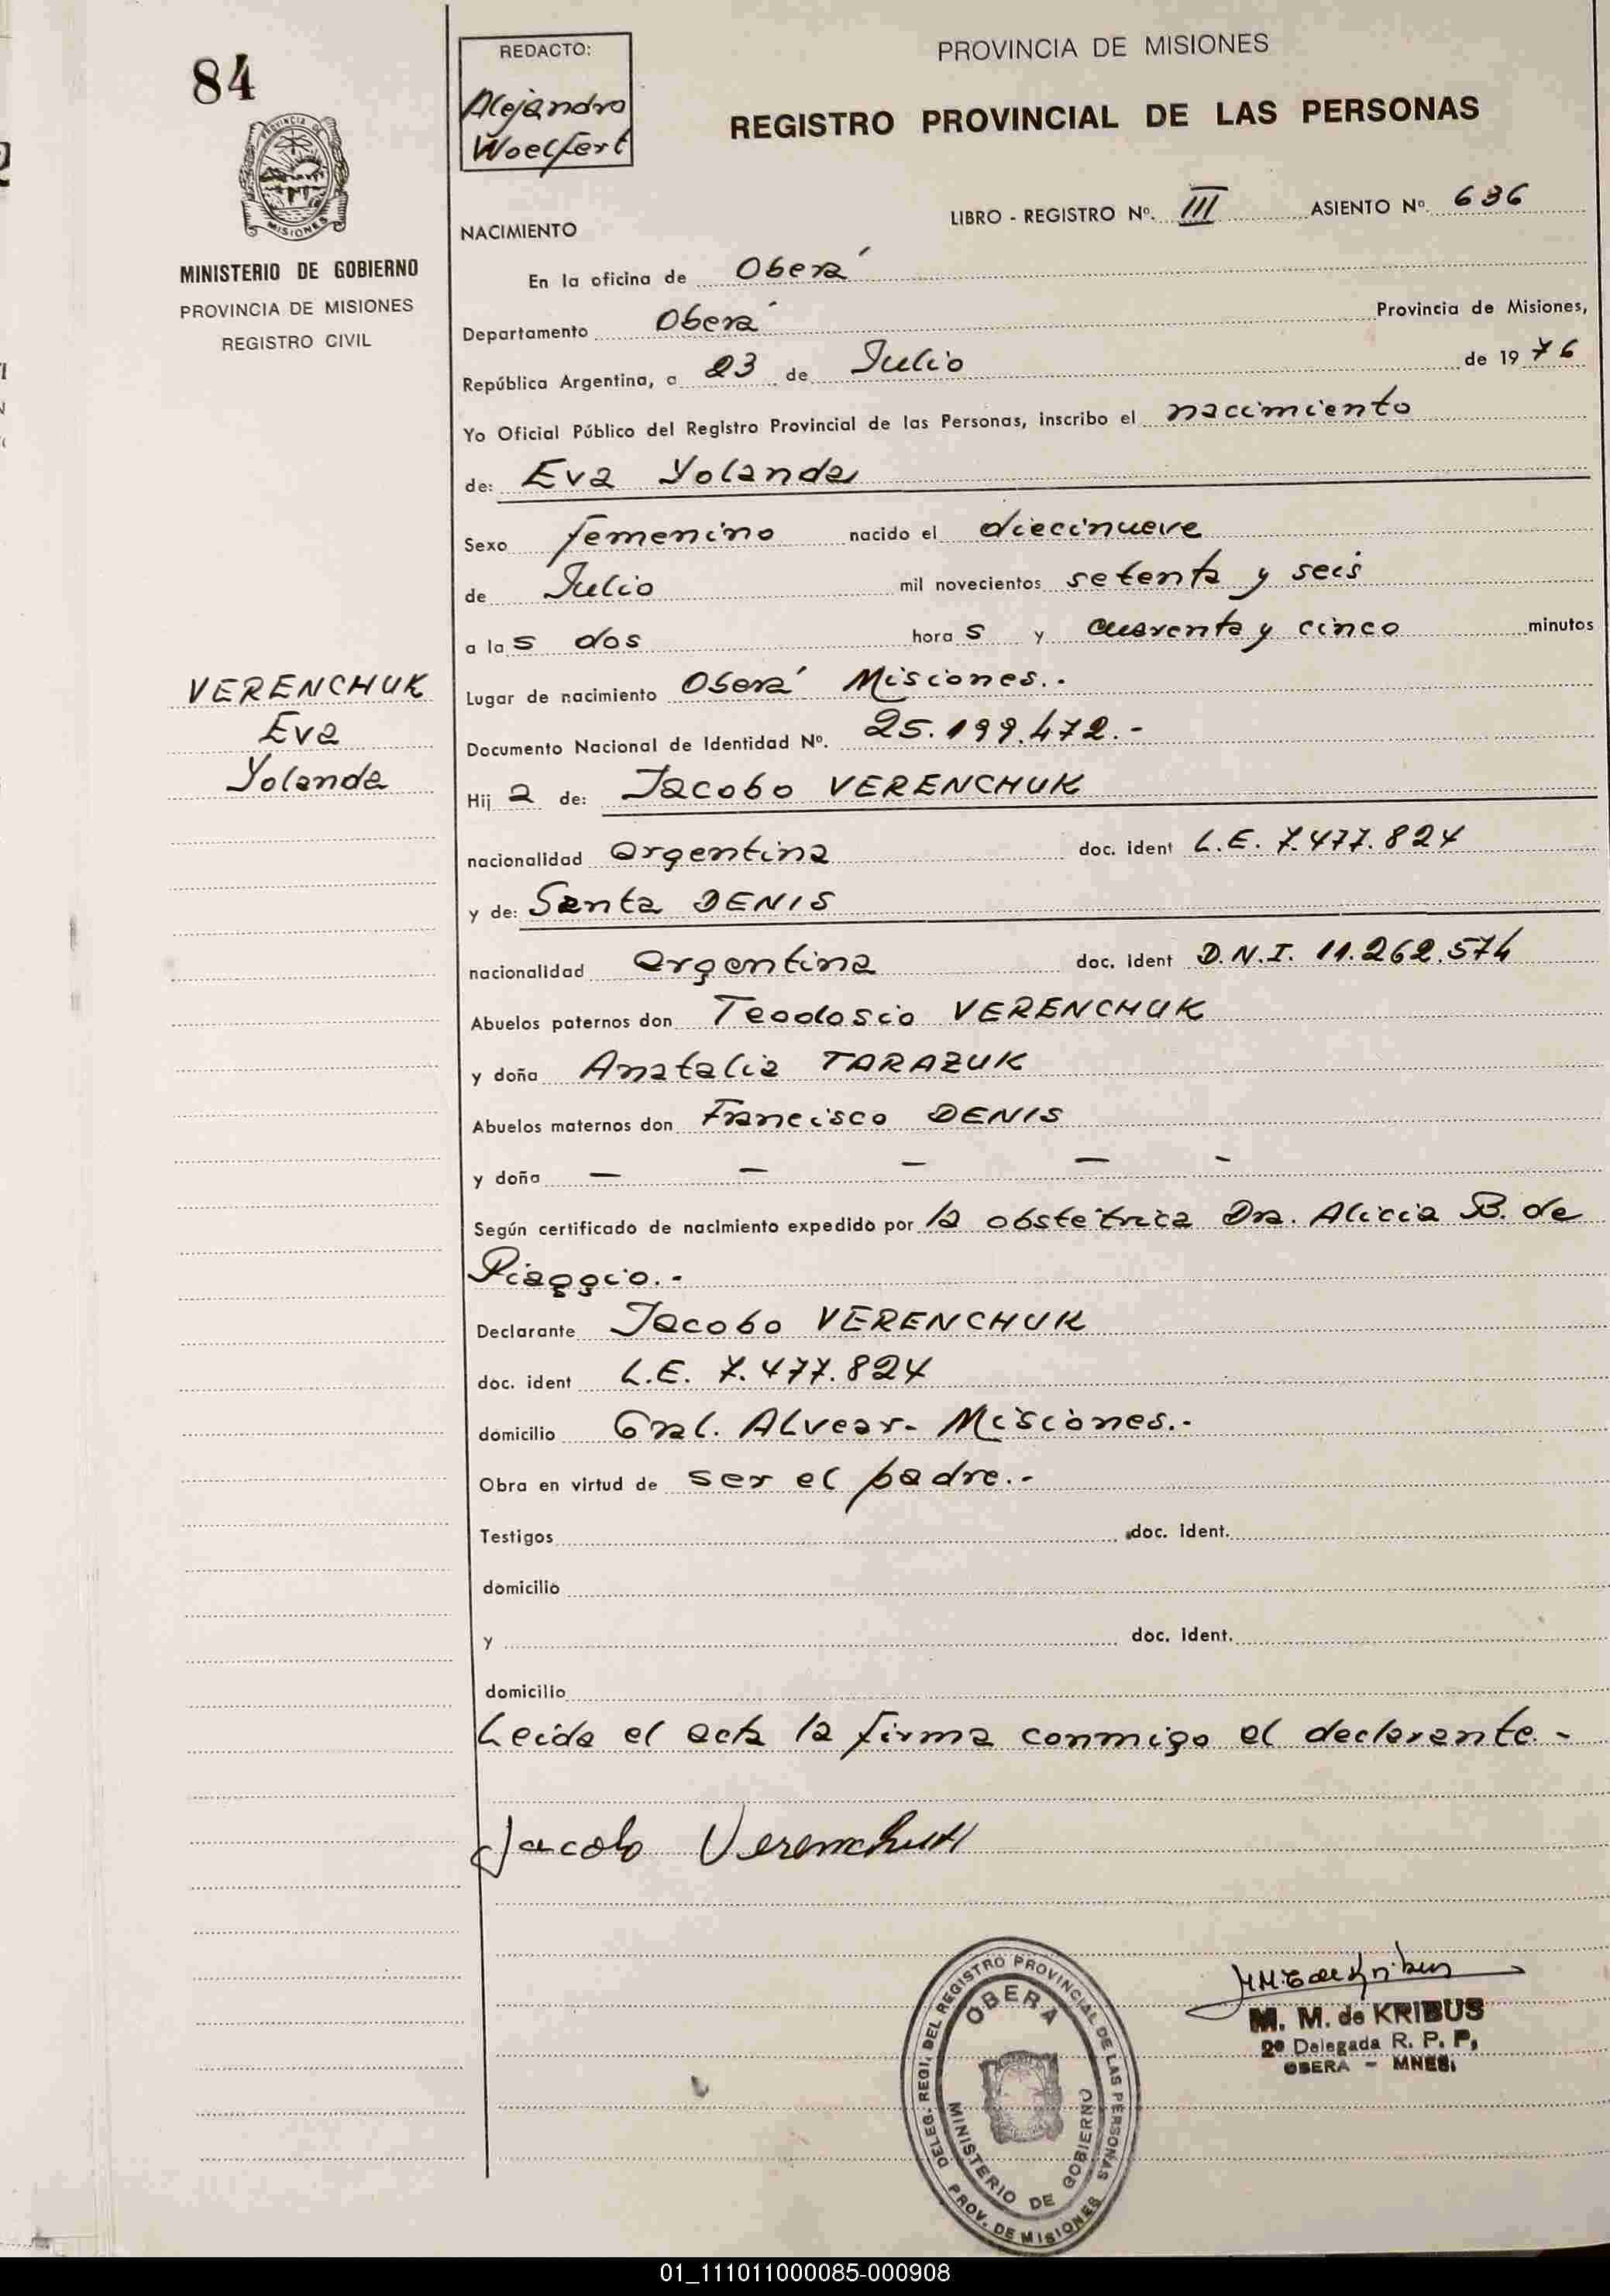 84
REDACTO:
Alejandro
Woelfert
PROVINCIA DE MISIONES
REGISTRO PROVINCIAL DE LAS PERSONAS
PROVINCIA DE
MISIONES
MINISTERIO DE GOBIERNO
PROVINCIA DE MISIONES
REGISTRO CIVIL
LIBRO - REGISTRO Nº. III ASIENTO Nº. 636
NACIMIENTO
En la oficina de Oberá
Departamento Oberá Provincia de Misiones,
República Argentina, a 23 de Julio de 1976
Yo Oficial Público del Registro Provincial de las Personas, inscribo el nacimiento
de: Eva Yolanda
Sexo femenino nacido el diecinueve
de Julio mil novecientos setenta y seis
a las dos horas y cuarenta y cinco minutos
VERENCHUK
Eva
Yolanda
Lugar de nacimiento Oberá Misiones.-
Documento Nacional de Identidad Nº. 25.199.472.-
Hija de: Jacobo VERENCHUK
nacionalidad argentina doc. ident L.E. 7.477.824
y de: Santa DENIS
nacionalidad argentina doc. ident D.N.I. 11.262.574
Abuelos paternos don Teodosio VERENCHUK
y doña Anatalia TARAZUK
Abuelos maternos don Francisco DENIS
y doña — — — — -
Según certificado de nacimiento expedido por la obstétrica Dra. Alicia B. de
Piaggio.-
Declarante Jacobo VERENCHUK
doc. ident L.E. 7.477.824
domicilio Gral. Alvear- Misiones.-
Obra en virtud de ser el padre.-
Testigos doc. ident.
domicilio
y doc. ident.
domicilio
Leida el acta la firma conmigo el declarante.-
Jacobo Verenchuk
M. M. de KRIBUS
2º Delegada R. P. P.
OBERA - MNES.
DELEG. REGI. DEL REGISTRO PROVINCIAL DE LAS PERSONAS
OBERA
MINISTERIO DE GOBIERNO
PROV. DE MISIONES
01_111011000085-000908